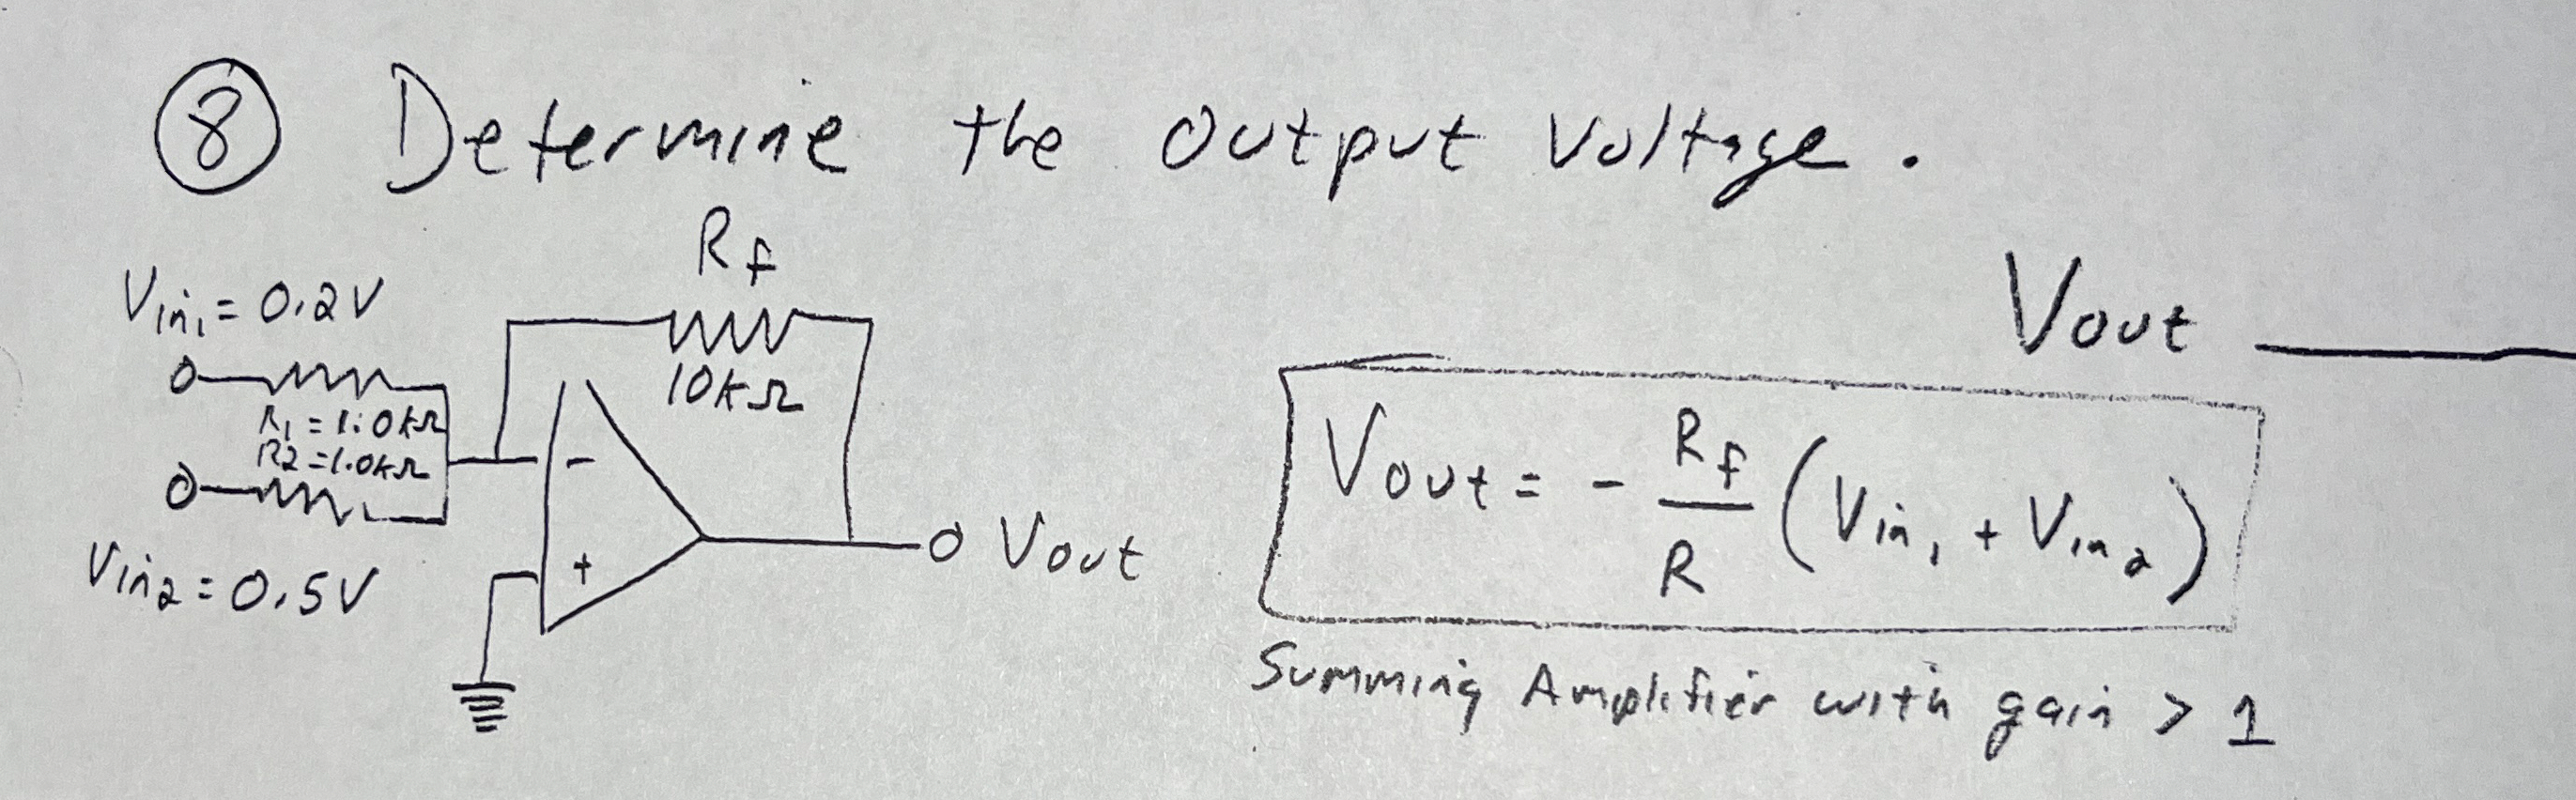 ⑧ Determine the output voltage.
Rf
10kΩ
Vin1 = 0.2V
R1 = 1.0kΩ
R2 = 1.0kΩ
Vin2 = 0.5V
-
+
Vout
Vout
Vout = - Rf/R (Vin1 + Vin2)
Summing Amplifier with gain > 1